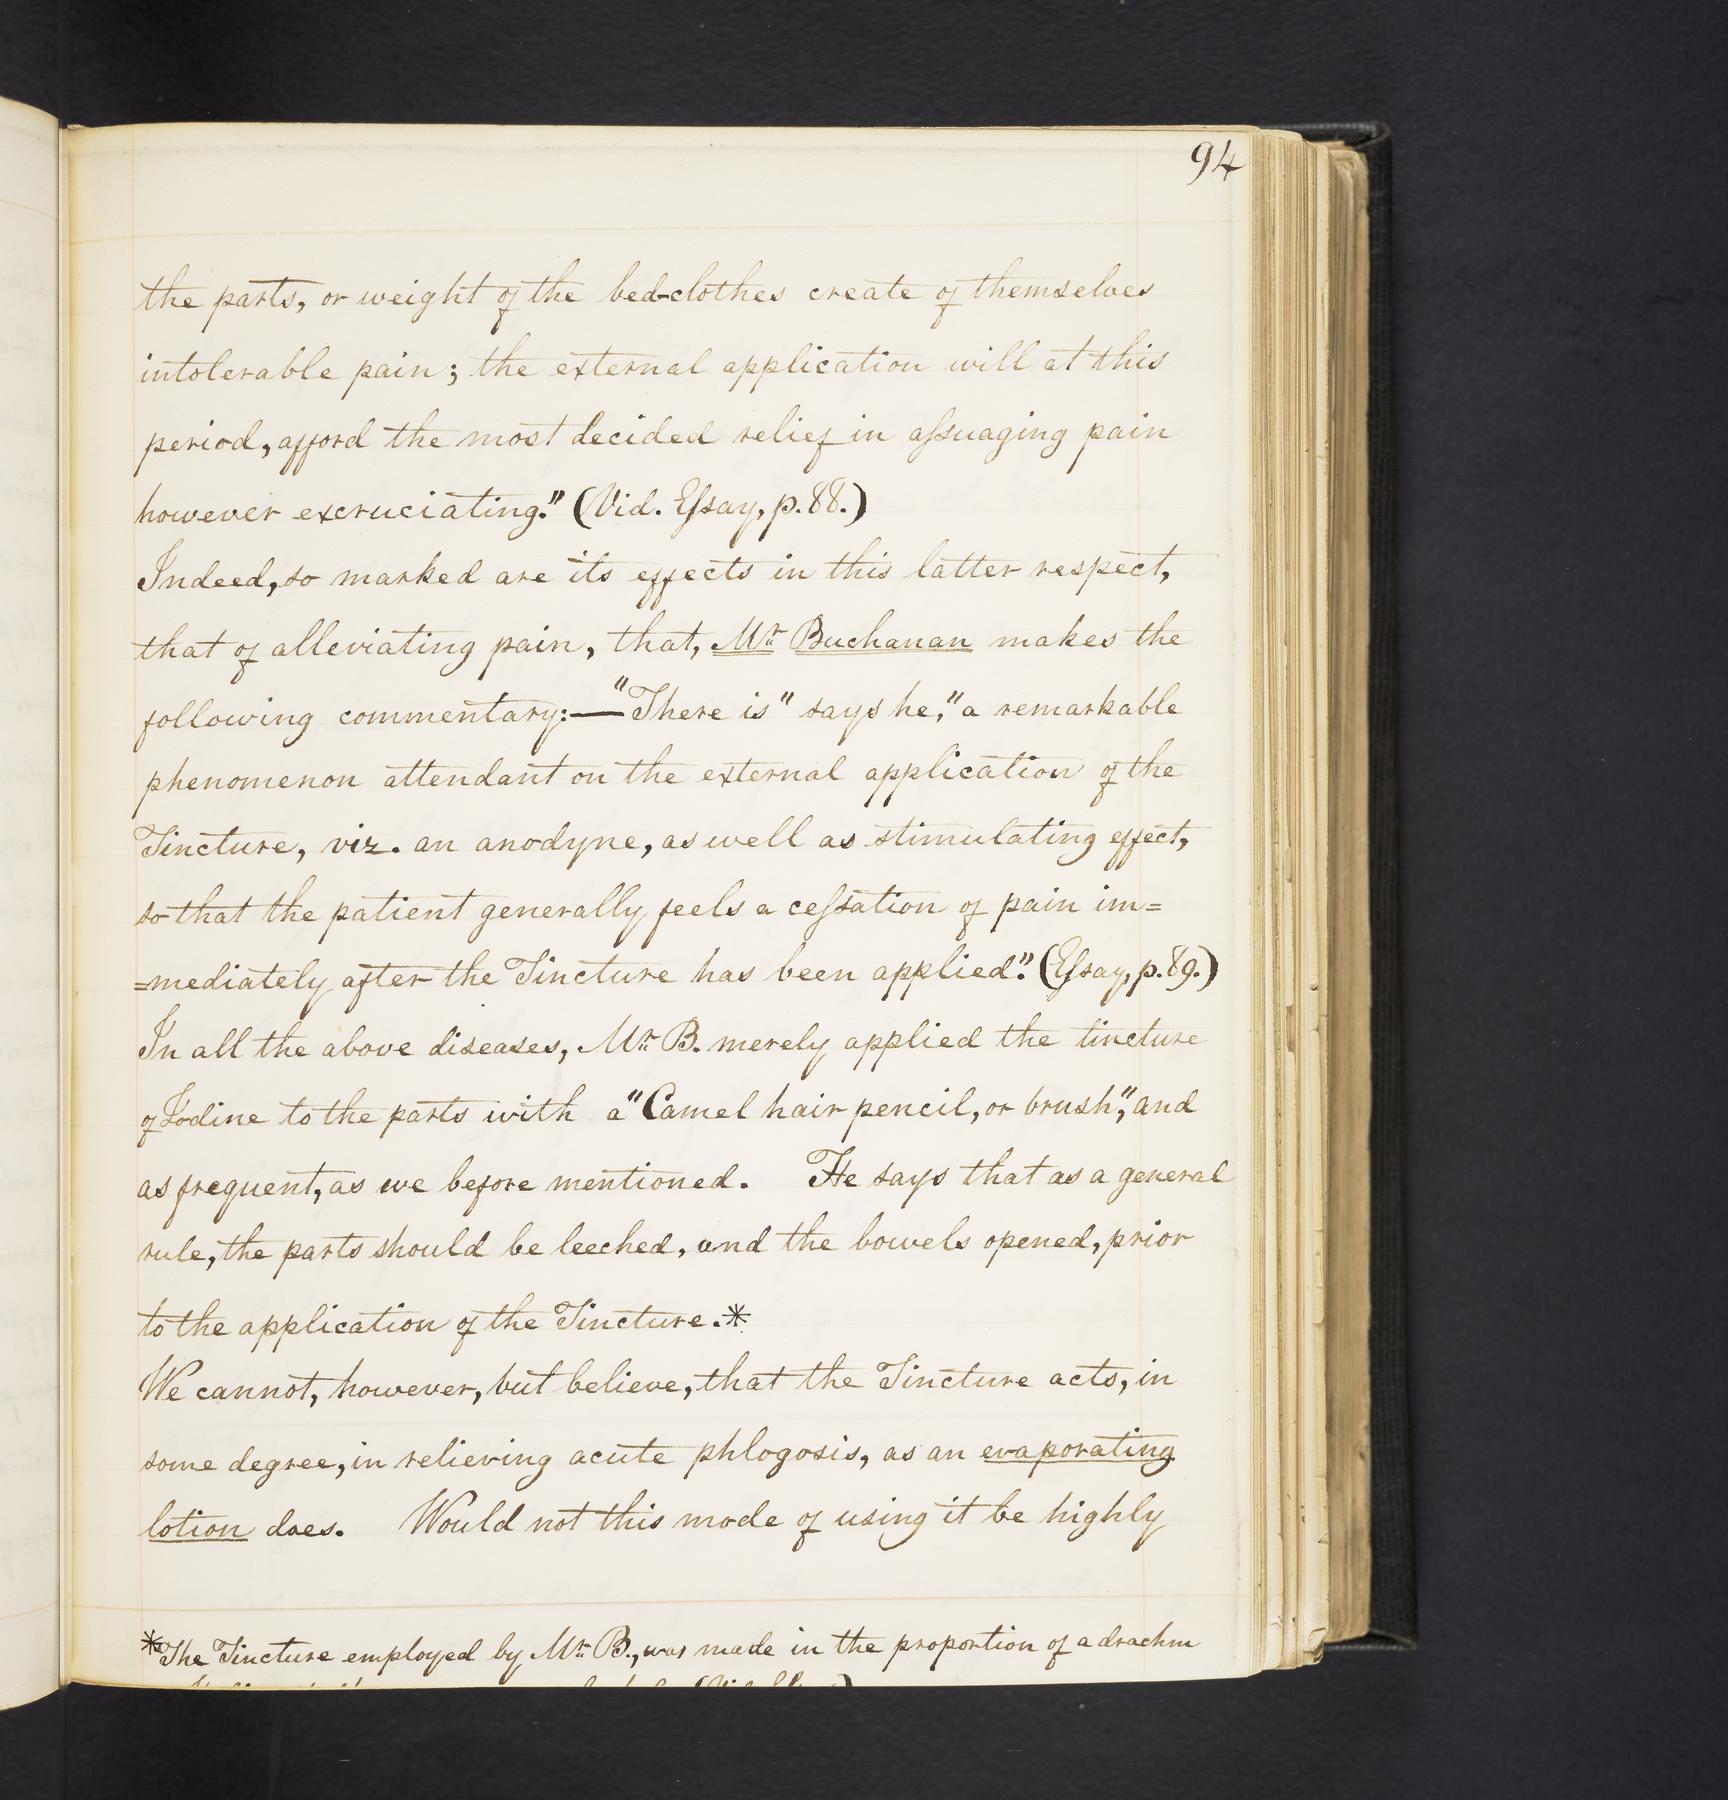 94
the parts, or weight of the bed-clothes create of themselves
intolerable pain; the external application will at this
period, afford the most decided relief in aſsuaging pain
however excruciating." (Vid. Eſsay, p. 88.)
Indeed, so marked are its effects in this latter respect,
that of alleviating pain, that, Mr. Buchanan makes the
following commentary:—"There is" says he, "a remarkable
phenomenon attendant on the external application of the
Tincture, viz. an anodyne, as well as stimulating effect,
so that the patient generally feels a ceſsation of pain im=
=mediately after the Tincture has been applied." (Eſsay, p. 89.)
In all the above diseases, Mr. B. merely applied the tincture
of Iodine to the parts with a "Camel hair pencil, or brush", and
as frequent, as we before mentioned. He says that as a general
rule, the parts should be leeched, and the bowels opened, prior
to the application of the Tincture.*
We cannot, however, but believe, that the Tincture acts, in
some degree, in relieving acute phlogosis, as an evaporating
lotion does. Would not this mode of using it be highly
*The Tincture employed by Mr. B., was made in the proportion of a drachm